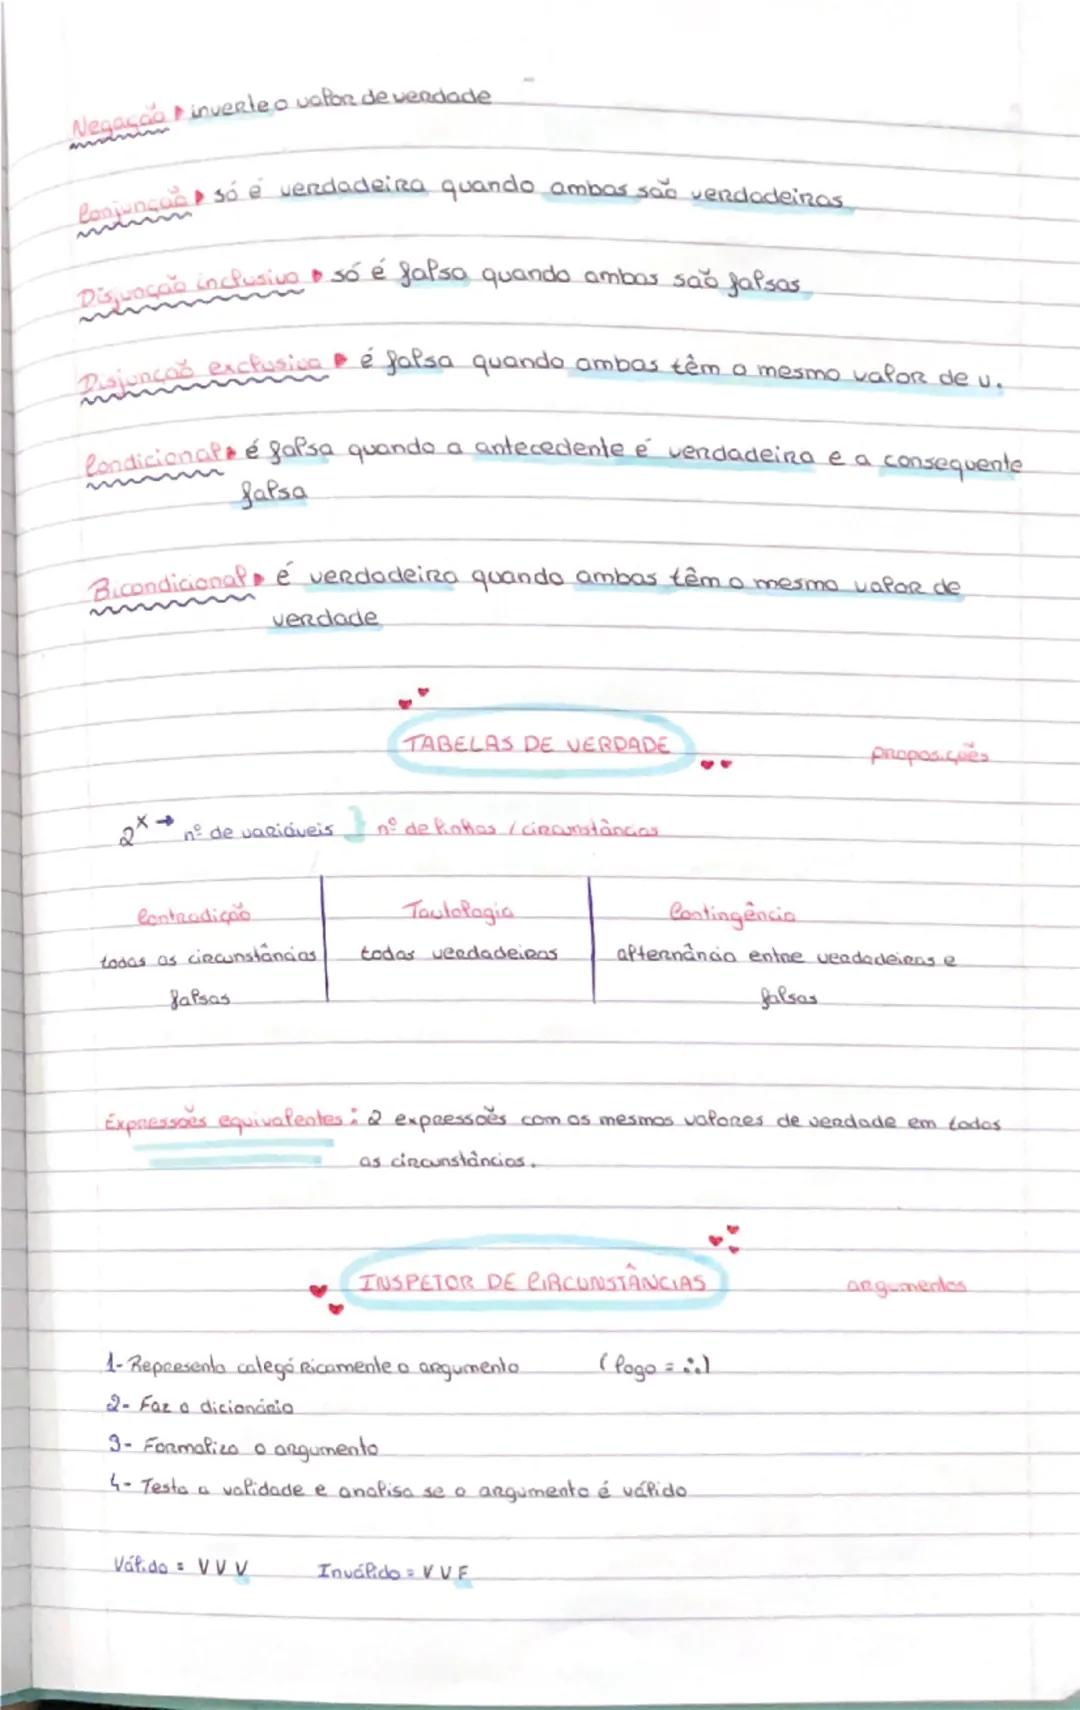 Negação inverte o valor de verdade
Conjunção só é verdadeira quando ambas são verdadeiras
Disjunção inclusiva só é falsa quando ambas são falsas
Disjunção exclusiva é falsa quando ambas têm o mesmo valor de v.
Condicional é falsa quando a antecedente é verdadeira e a consequente
falsa
Bicondicional é verdadeira quando ambas têm o mesmo valor de
verdade
TABELAS DE VERDADE proposições
2^x → nº de variáveis } nº de linhas / circunstâncias
Contradição Tautologia Contingência
todas as circunstâncias todas verdadeiras alternância entre verdadeiras e
falsas falsas
Expressões equivalentes: 2 expressões com os mesmos valores de verdade em todas
as circunstâncias.
INSPETOR DE CIRCUNSTÂNCIAS argumentos
1- Representa categóricamente o argumento (logo = ∴)
2- Faz o dicionário
3- Formaliza o argumento
4- Testa a validade e analisa se o argumento é válido
Válido = V V V Inválido = V V F